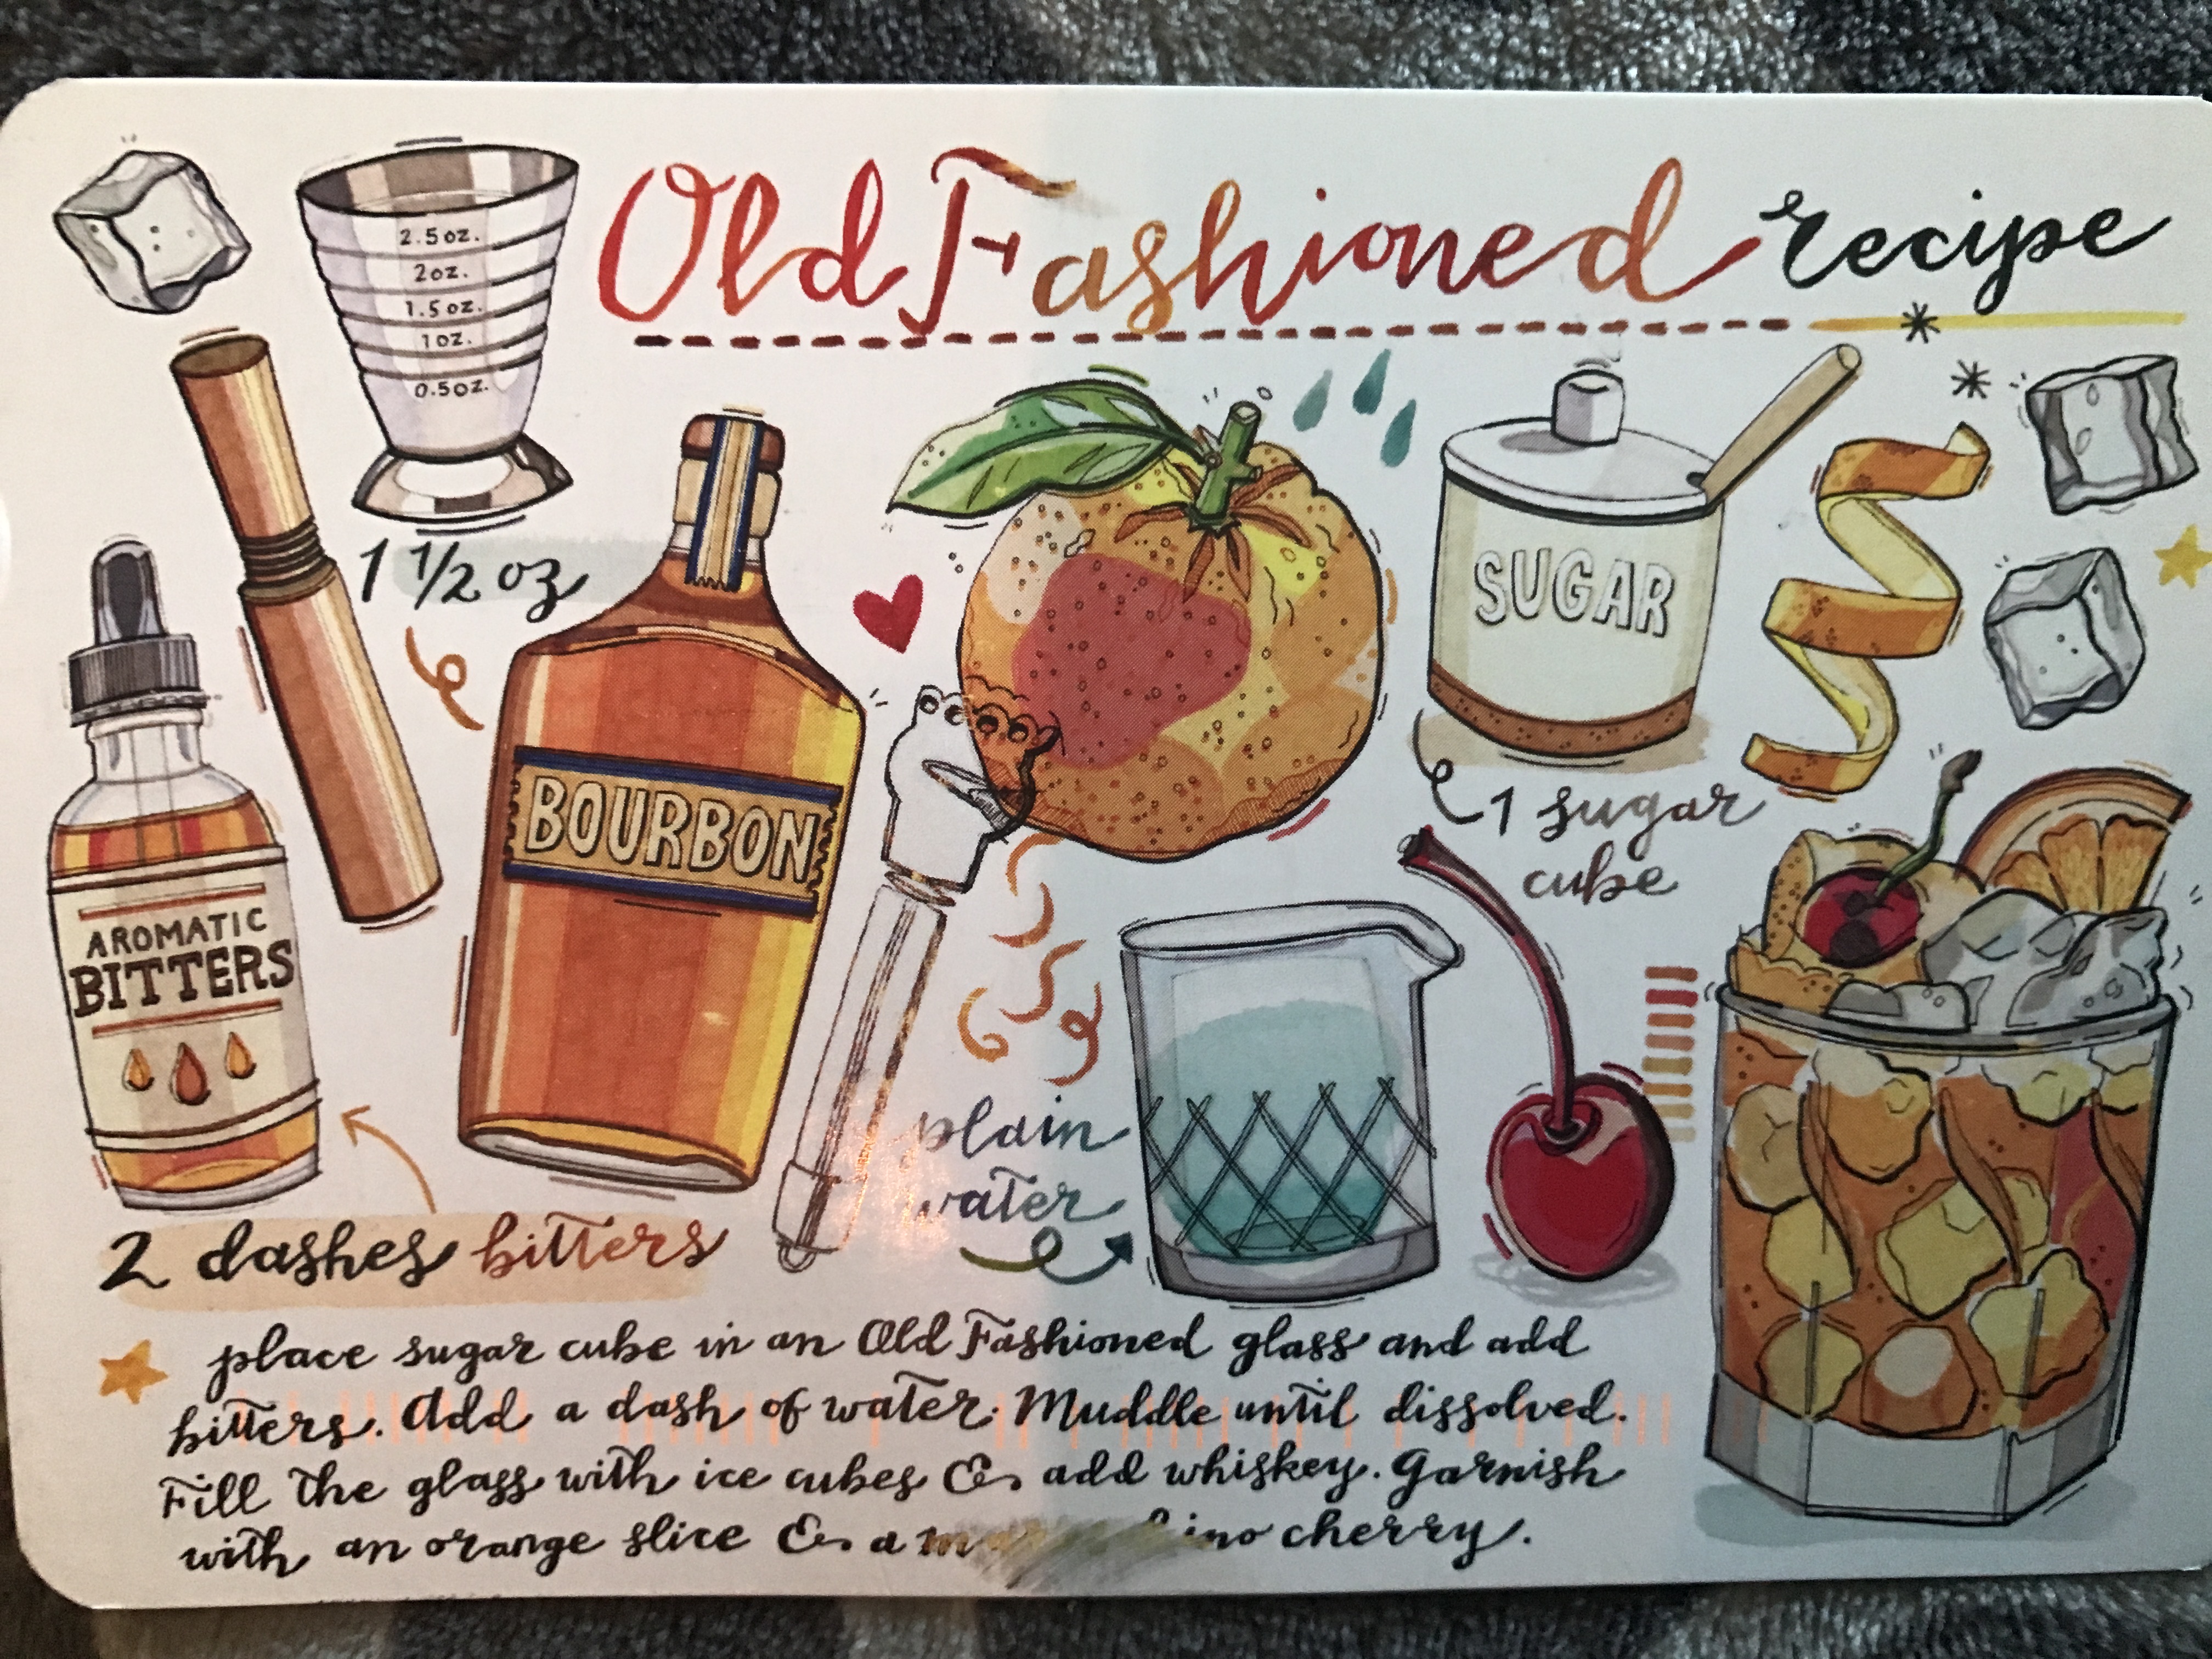 Old Fashioned recipe
2.5 oz.
2 oz.
1.5 oz.
1 oz.
0.5 oz.
1 1/2 oz
BOURBON
SUGAR
1 sugar
cube
AROMATIC
BITTERS
plain
water
2 dashes bitters
place sugar cube in an Old Fashioned glass and add
bitters. Add a dash of water. Muddle until dissolved.
Fill the glass with ice cubes & add whiskey. Garnish
with an orange slice & a cherry.